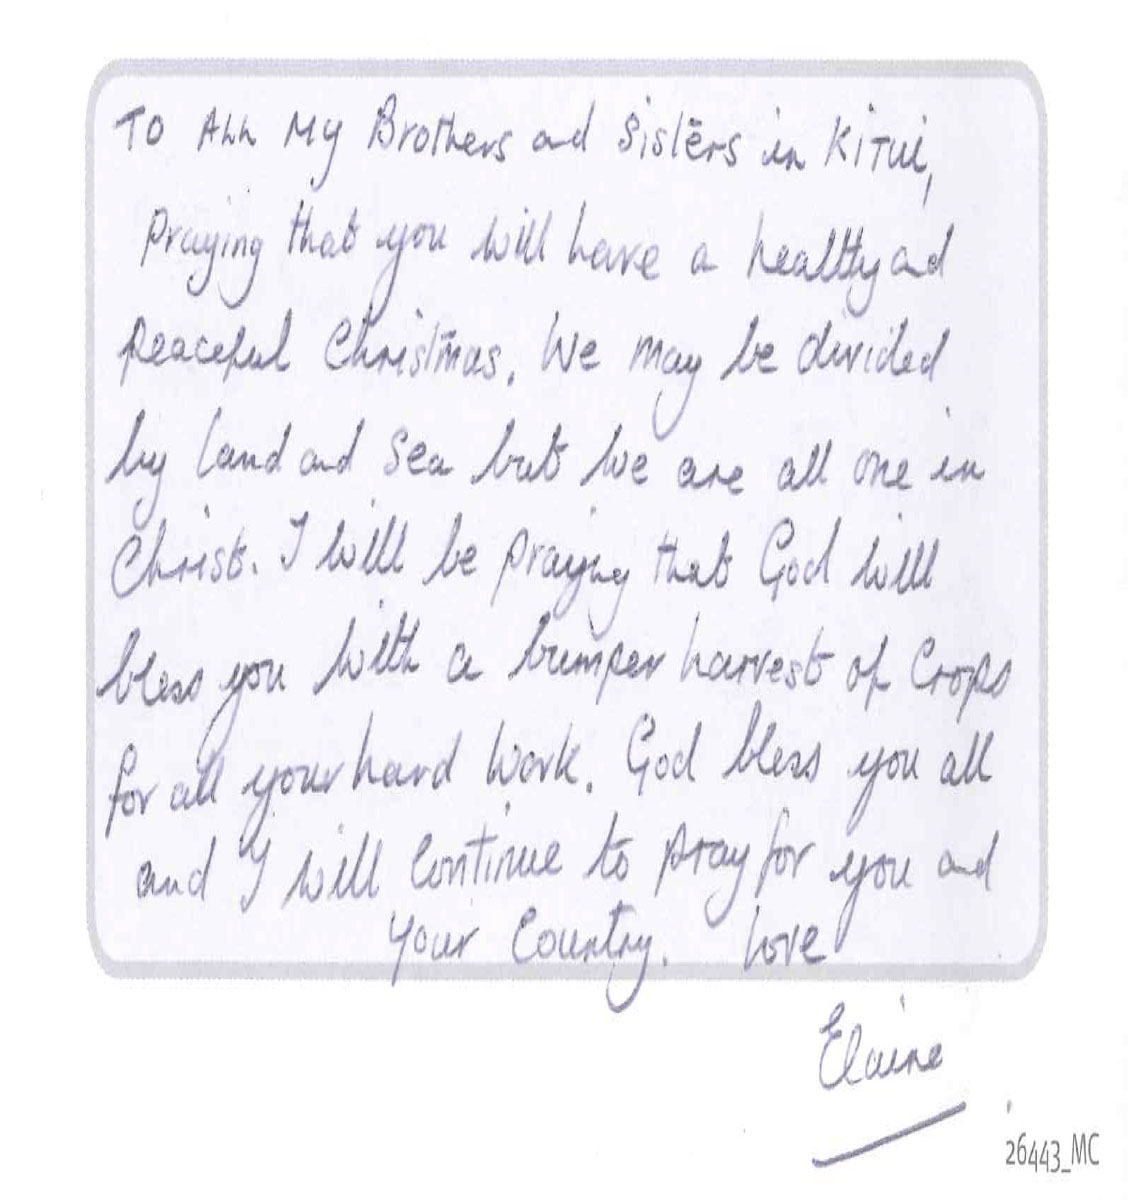 TO ALL My Brothers and Sisters in Kitui,
Praying that you will have a healthy and
peaceful Christmas. We may be divided
by land and sea but we are all one in
Christ. I will be praying that God will
bless you with a bumper harvest of crops
for all your hard work. God bless you all
and I will continue to pray for you and
your Country. Love
Elaine
26443_MC